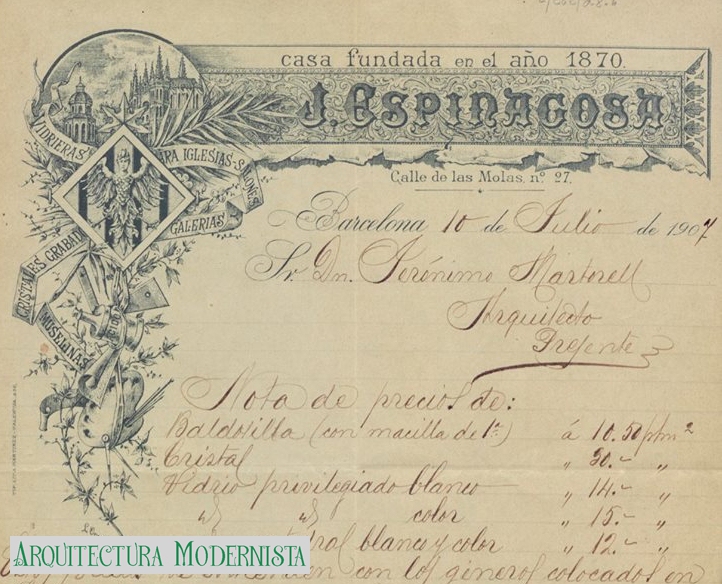 casa fundada en el año 1870.
J. ESPINAGOSA
Calle de las Molas, nº 27.
VIDRIERAS PARA IGLESIAS-SALONES
GALERIAS
CRISTALES GRABAD
MUSELINAS
Barcelona 10 de Julio de 1907
Sr. Dn. Jerónimo Martorell
Arquitecto
Presente
Nota de precios de:
Baldosilla (con macilla de 1ª) á 10.50 ptm²
Cristal " 30.- "
Vidrio privilegiado blanco " 14.- "
color " 15.- "
blanco y color " 12.- "
con los géneros colocados en
ARQUITECTURA MODERNISTA